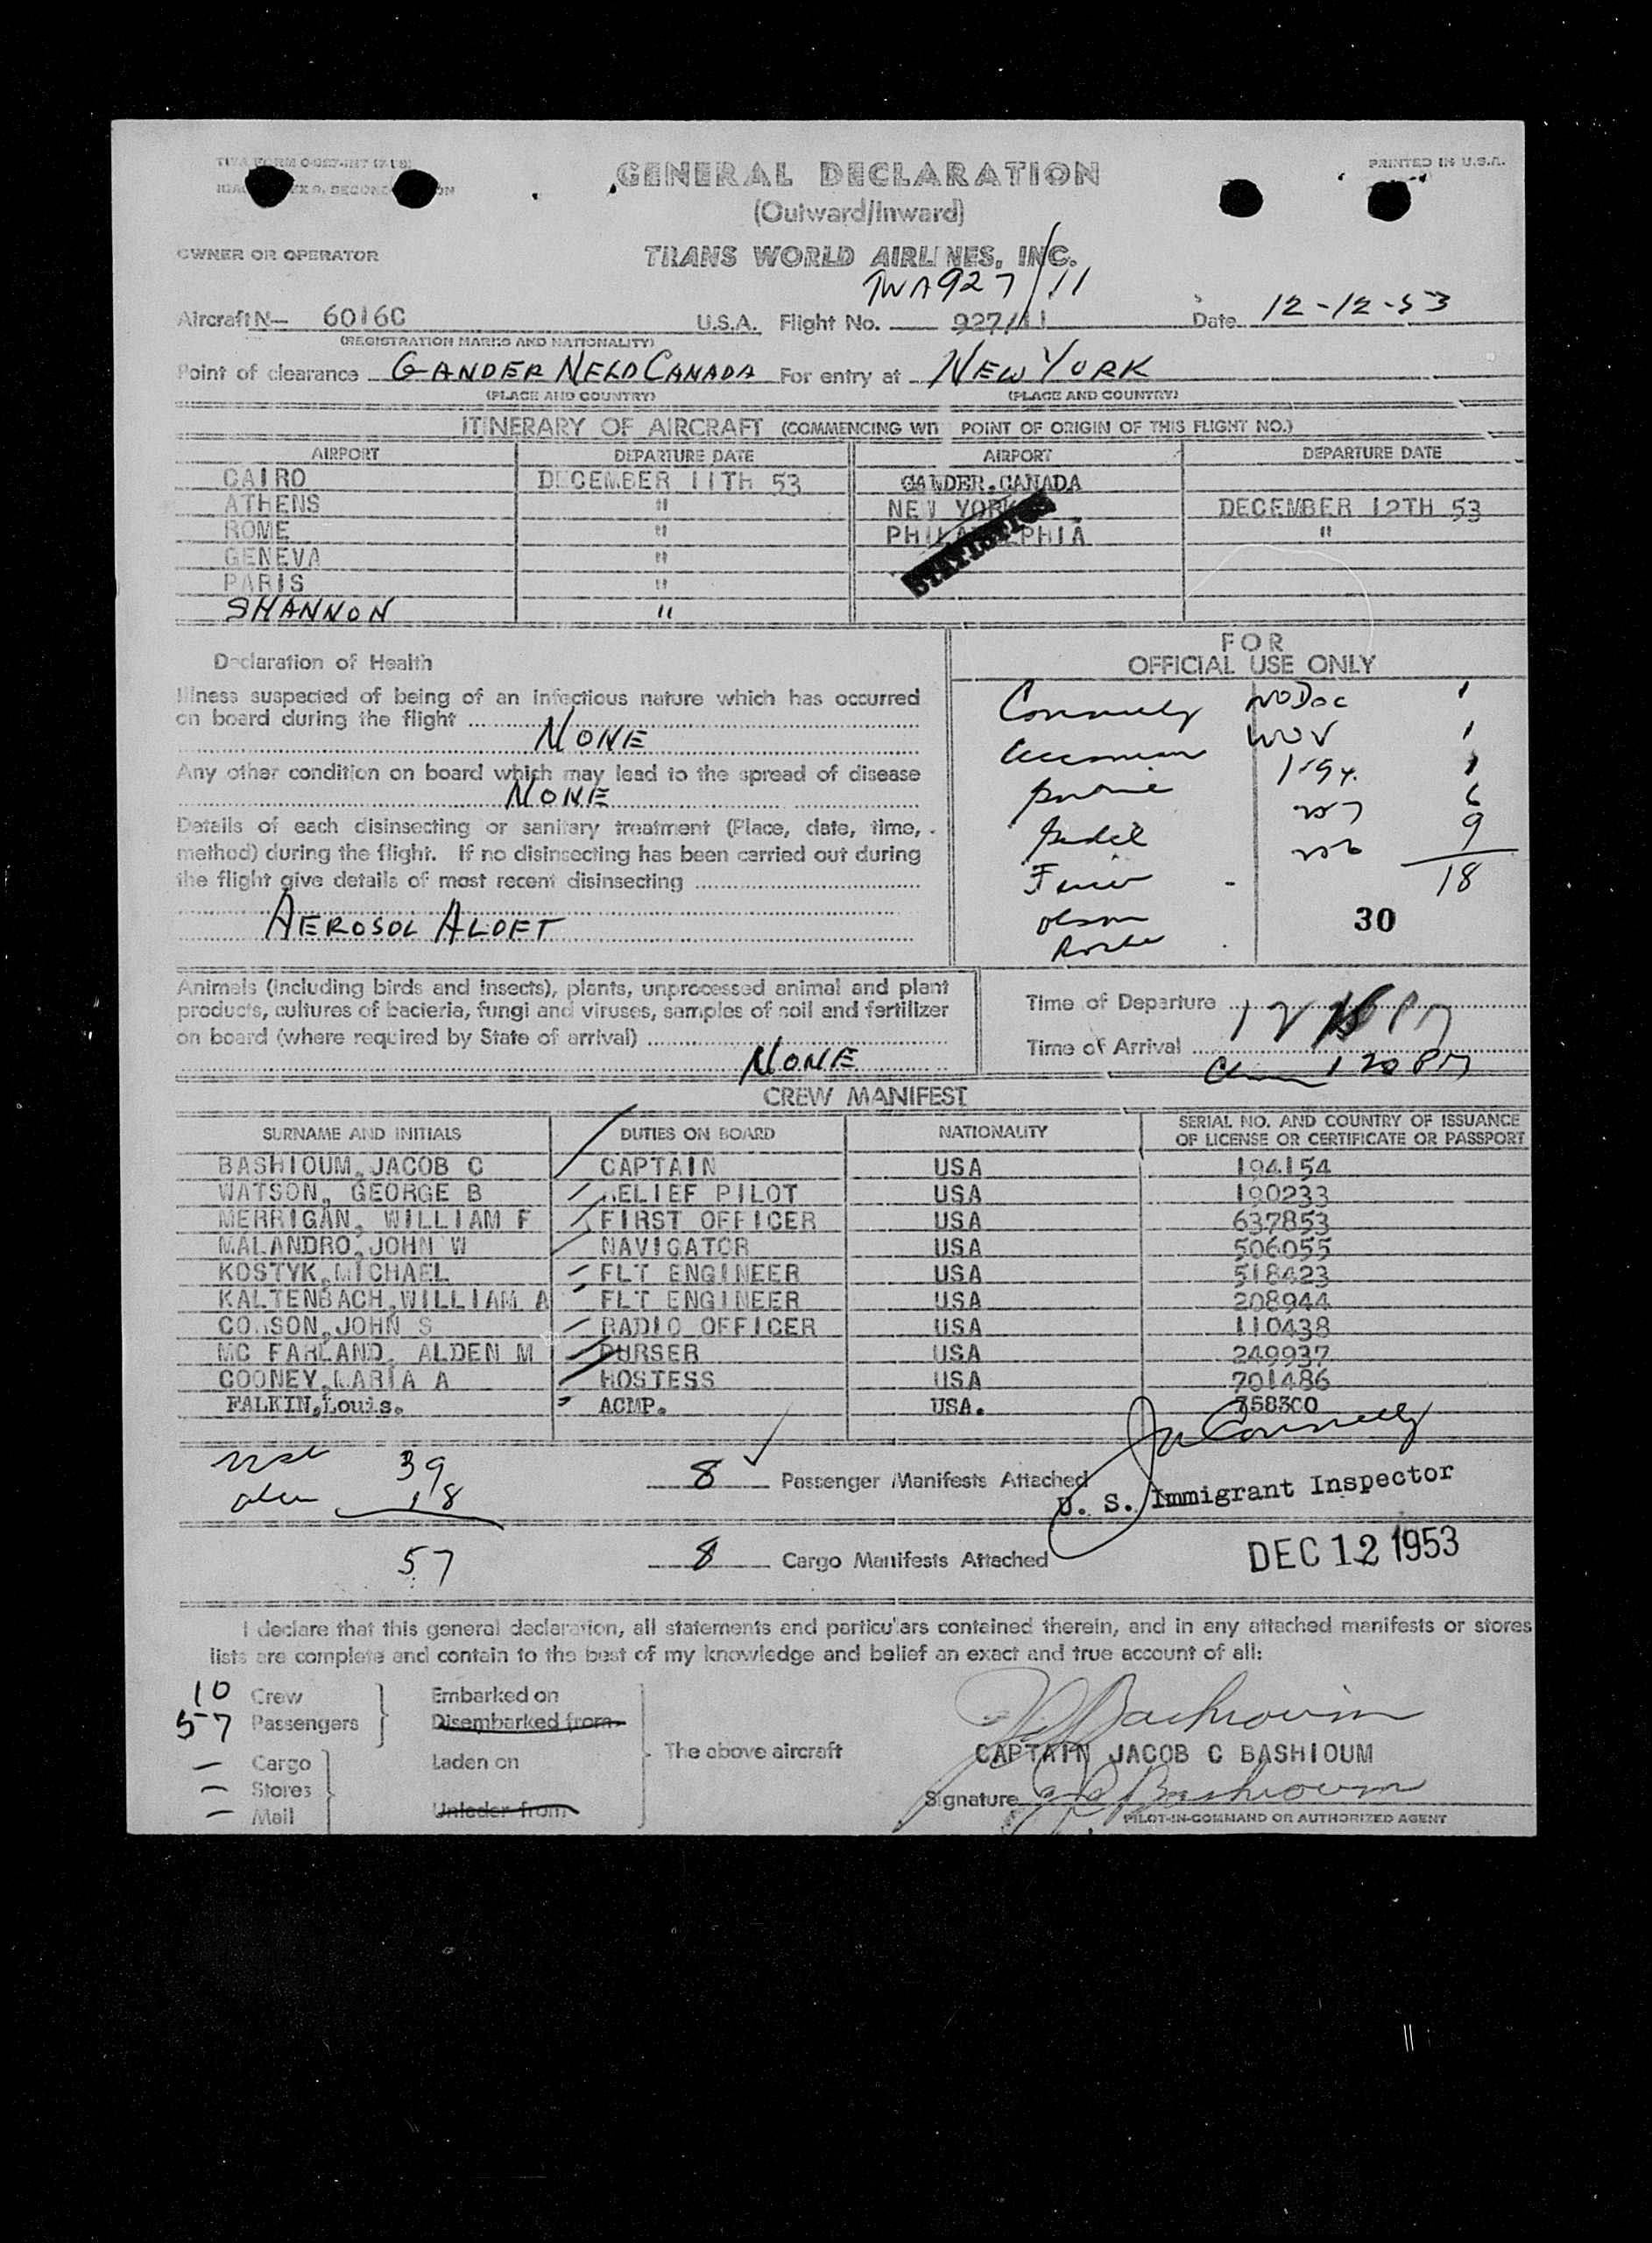 TWA FORM
GENERAL DECLARATION
PRINTED IN U.S.A.
(Outward/Inward)
OWNER OR OPERATOR
TRANS WORLD AIRLINES, INC.
TWA927/11
Aircraft N— 6016C U.S.A. Flight No. 927/11 Date 12-12-53
(REGISTRATION MARKS AND NATIONALITY)
Point of clearance GANDER NFLD CANADA For entry at NEW YORK
(PLACE AND COUNTRY) (PLACE AND COUNTRY)
ITINERARY OF AIRCRAFT (COMMENCING WITH POINT OF ORIGIN OF THIS FLIGHT NO.)
AIRPORT DEPARTURE DATE AIRPORT DEPARTURE DATE
CAIRO DECEMBER 11TH 53 GANDER.CANADA
ATHENS " NEW YORK DECEMBER 12TH 53
ROME " PHILADELPHIA "
GENEVA "
PARIS "
SHANNON "
STATISTICS
Declaration of Health
Illness suspected of being of an infectious nature which has occurred
on board during the flight
NONE
Any other condition on board which may lead to the spread of disease
NONE
Details of each disinsecting or sanitary treatment (Place, date, time,
method) during the flight. If no disinsecting has been carried out during
the flight give details of most recent disinsecting
AEROSOL ALOFT
FOR
OFFICIAL USE ONLY
Connelly NO Doc 1
WOV 1
1
6
9
18
Olson
30
Animals (including birds and insects), plants, unprocessed animal and plant
products, cultures of bacteria, fungi and viruses, samples of soil and fertilizer
on board (where required by State of arrival)
NONE
Time of Departure
Time of Arrival
1 20 PM
CREW MANIFEST
SURNAME AND INITIALS DUTIES ON BOARD NATIONALITY SERIAL NO. AND COUNTRY OF ISSUANCE OF LICENSE OR CERTIFICATE OR PASSPORT
BASHIOUM,JACOB C CAPTAIN USA 194154
WATSON, GEORGE B RELIEF PILOT USA 190233
MERRIGAN, WILLIAM F FIRST OFFICER USA 637853
MALANDRO,JOHN W NAVIGATOR USA 506055
KOSTYK,MICHAEL FLT ENGINEER USA 518423
KALTENBACH,WILLIAM A FLT ENGINEER USA 208944
JOHN S RADIO OFFICER USA 110438
MC FARLAND, ALDEN M PURSER USA 249937
COONEY,MARIA A HOSTESS USA 701486
FALKIN,Louis. ACMP. USA. 758300
39
18
57
8 Passenger Manifests Attached
J Connelly
U. S. Immigrant Inspector
8 Cargo Manifests Attached
DEC 12 1953
I declare that this general declaration, all statements and particulars contained therein, and in any attached manifests or stores
lists are complete and contain to the best of my knowledge and belief an exact and true account of all:
10 Crew Embarked on
57 Passengers Disembarked from
— Cargo Laden on
— Stores
— Mail Unladen from
The above aircraft
J C Bashioum
CAPTAIN JACOB C BASHIOUM
Signature J C Bashioum
PILOT-IN-COMMAND OR AUTHORIZED AGENT